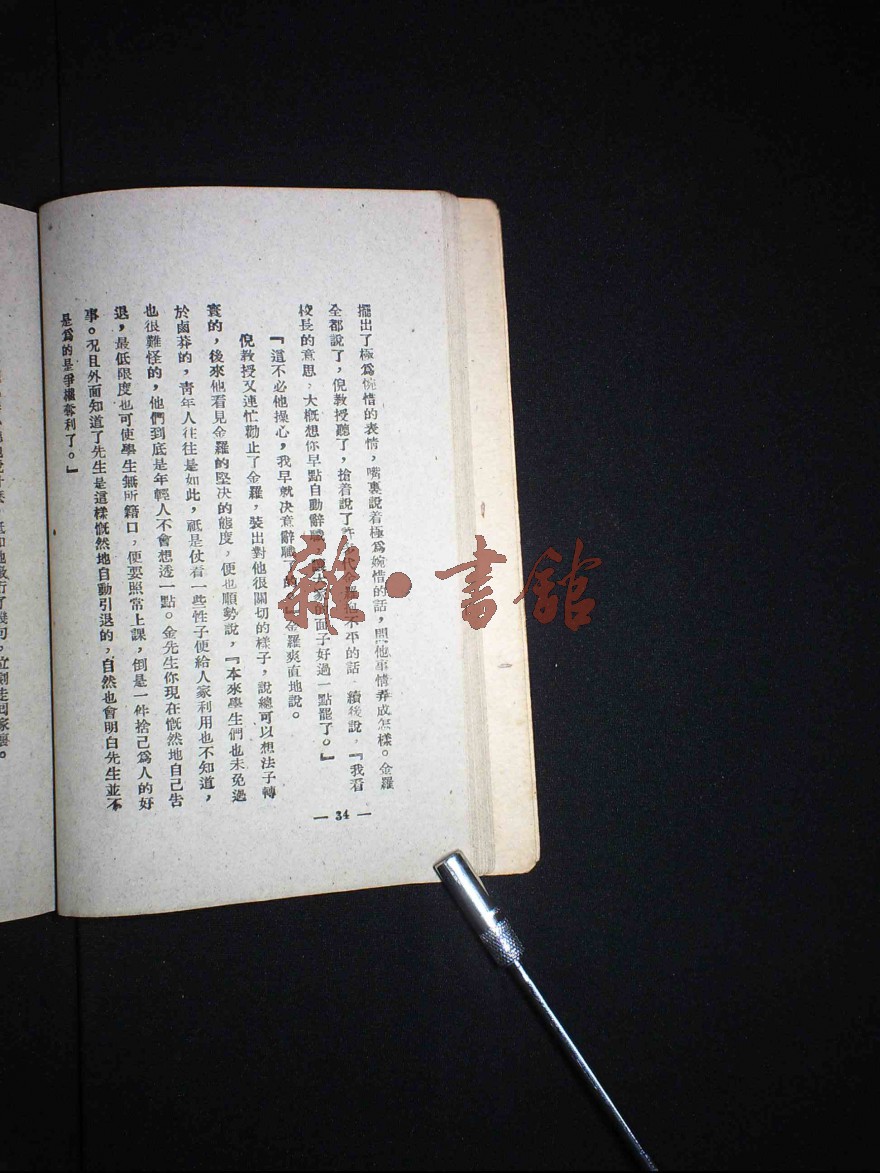 擺出了極爲惋惜的表情，嘴裏說着極爲婉惜的話，問他事情弄成怎樣。金羅
全都說了，倪教授聽了，搶着說了許 不平的話，續後說，『我看
校長的意思，大概想你早點自動辭職， 大家的面子好過一點罷了。』
『這不必他操心，我早就決意辭職了的。』金羅爽直地說。
倪教授又連忙勸止了金羅，裝出對他很關切的樣子，說總可以想法子轉
寰的，後來他看見金羅的堅决的態度，便也順勢說，『本來學生們也未免過
於鹵莽的，青年人往往是如此，祗是仗着一些性子便給人家利用也不知道，
也很難怪的，他們到底是年輕人不會想透一點。金先生你現在慨然地自己告
退，最低限度也可使學生無所籍口，便要照常上課，倒是一件捨己爲人的好
事。况且外面知道了先生是這樣慨然地自動引退的，自然也會明白先生並不
是爲的是爭權奪利了。』
— 34 —
雜·書館